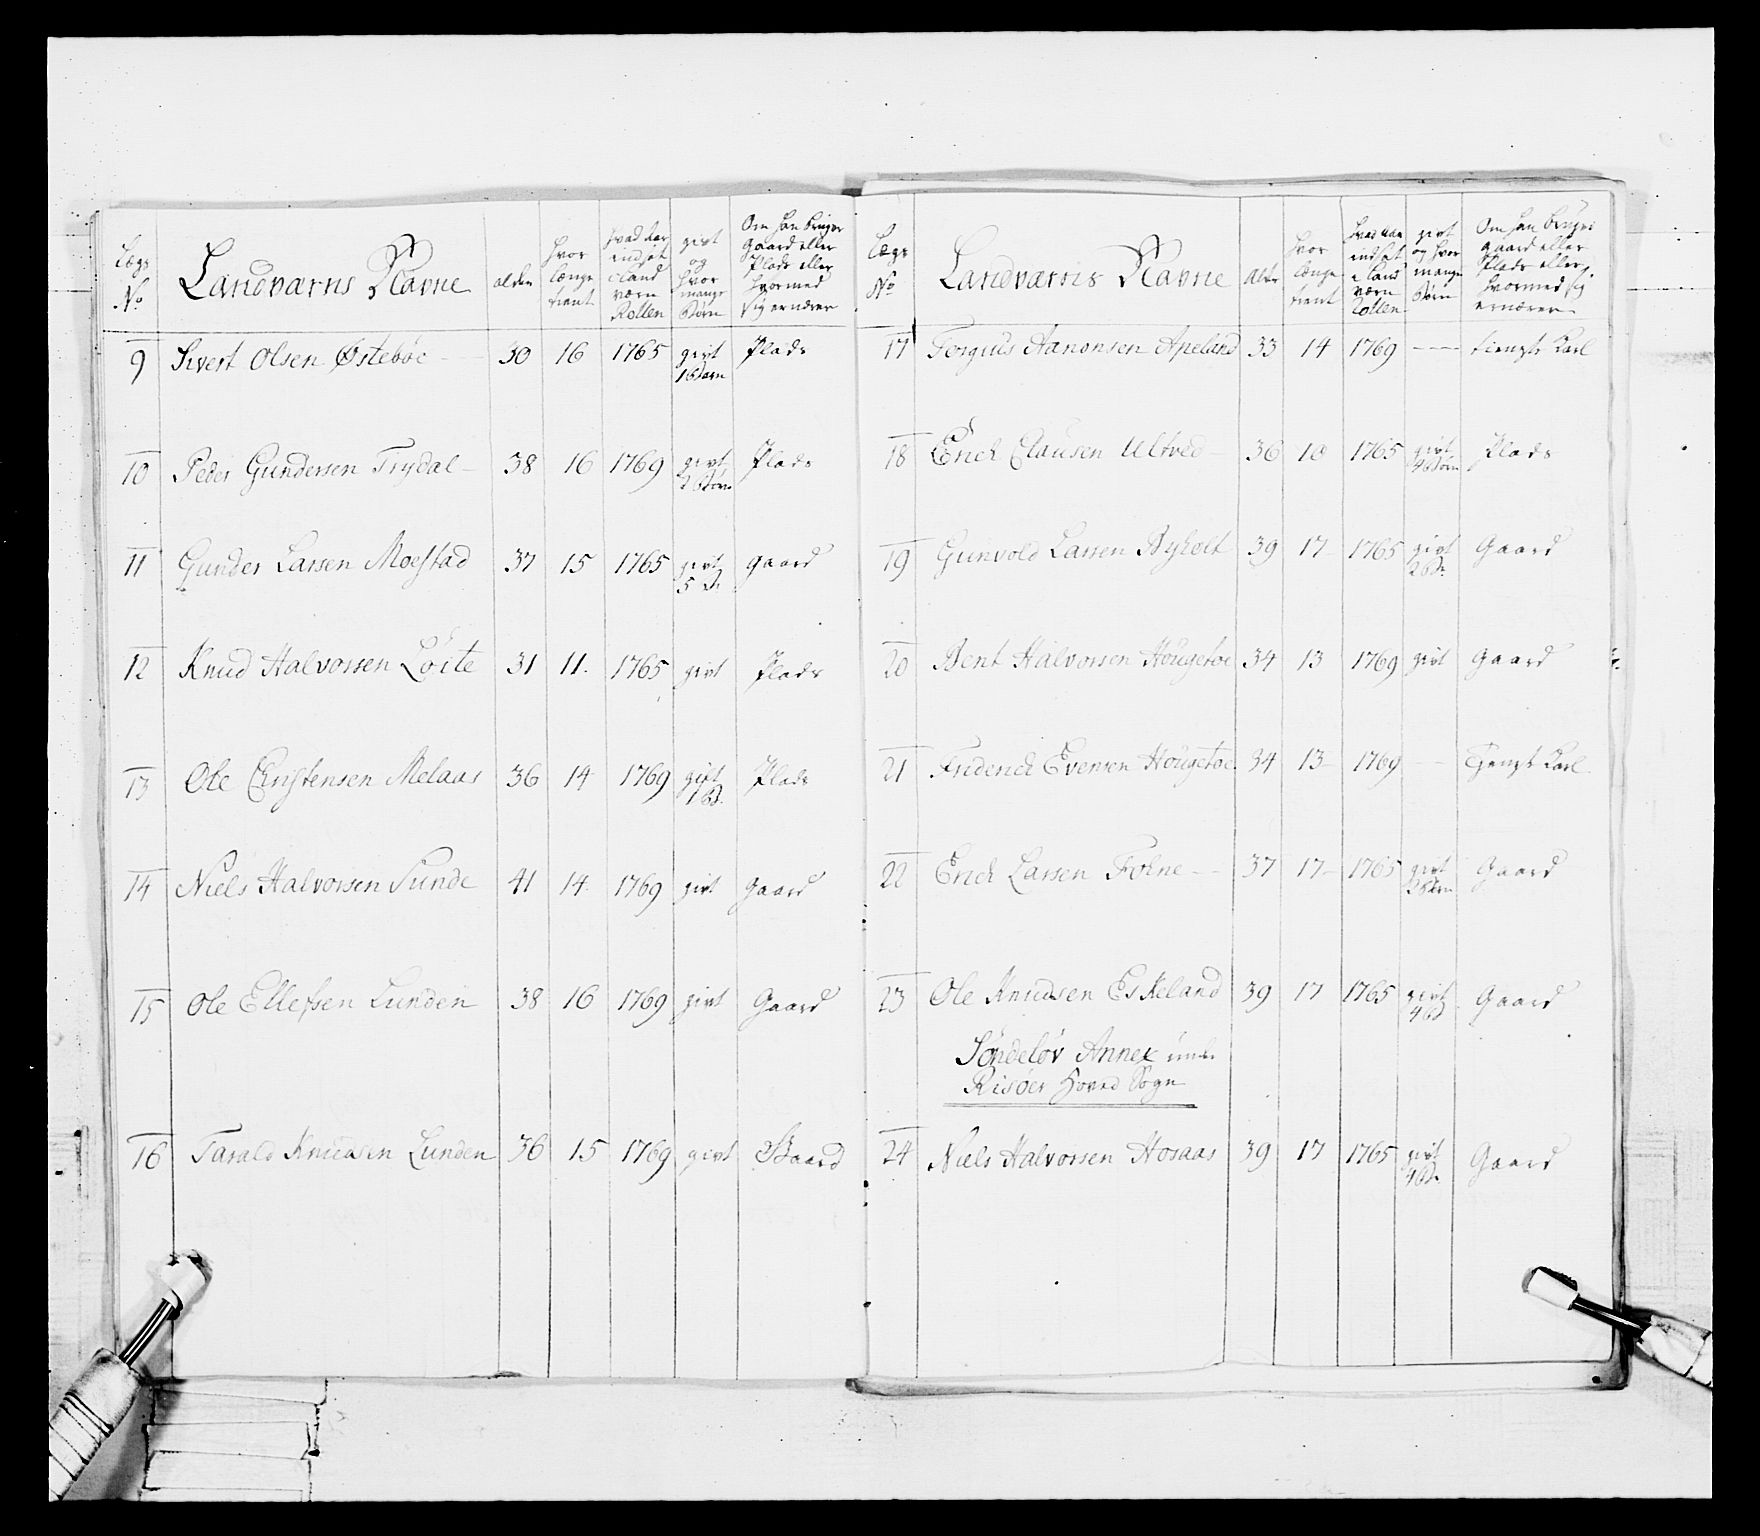 Lægs No
Landværns Navne
alder
hvor længe tient
hvad Aar indsat i Land værn Rollen
givt og hvor mange Børn
Om han bruger Gaard eller Plads eller hvormed sig ernærer
9 Sivert Olsen Østebøe — 30 16 1765 givt 1 Barn Plads
10 Peder Gundersen Trydal — 38 16 1769 givt 2 Børn Plads
11 Gunder Larsen Moestad 37 15 1765 givt 5 dn Gaard
12 Knud Halvorsen Löite 31 11. 1765 givt Plads
13 Ole Christensen Melaas 36 14 1769 givt 1 B. Plads
14 Niels Halvorsen Sunde 41 14 1769 givt Gaard
15 Ole Ellefsen Lunden 38 16 1769 givt Gaard
16 Tarald Knudsen Lunden 36 15 1769 givt Gaard
Lægs No
Landværns Navne
alder
hvor længe tient
hvad Aar indsat i Land værn Rollen
givt og hvor mange Børn
Om han bruger gaard eller Plads eller hvormed sig ernærer
17 Torgius Aanonsen Apeland 33 14 1769 — tienste Karl
18 Erich Clausen Ultved 36 18 1765 givt 4 Børn Plads
19 Gunvold Larsen Byholt 39 17 1765 givt 2 Bn Gaard
20 Bent Halvorsen Hougetoe 34 13 1769 givt Gaard
21 Friderich Evensen Hougetoe 34 13 1769 — Tjenste Karl
22 Erich Larsen Folne — 37 17 1765 givt 2 Børn Gaard
23 Ole Knudsen Eskeland 39 17 1765 givt 4 B Gaard
Söndelöv Annex under
Risöer Hoved Sogn
24 Niels Halvorsen Hosaas 39 17 1765 givt 4 Bn Gaard